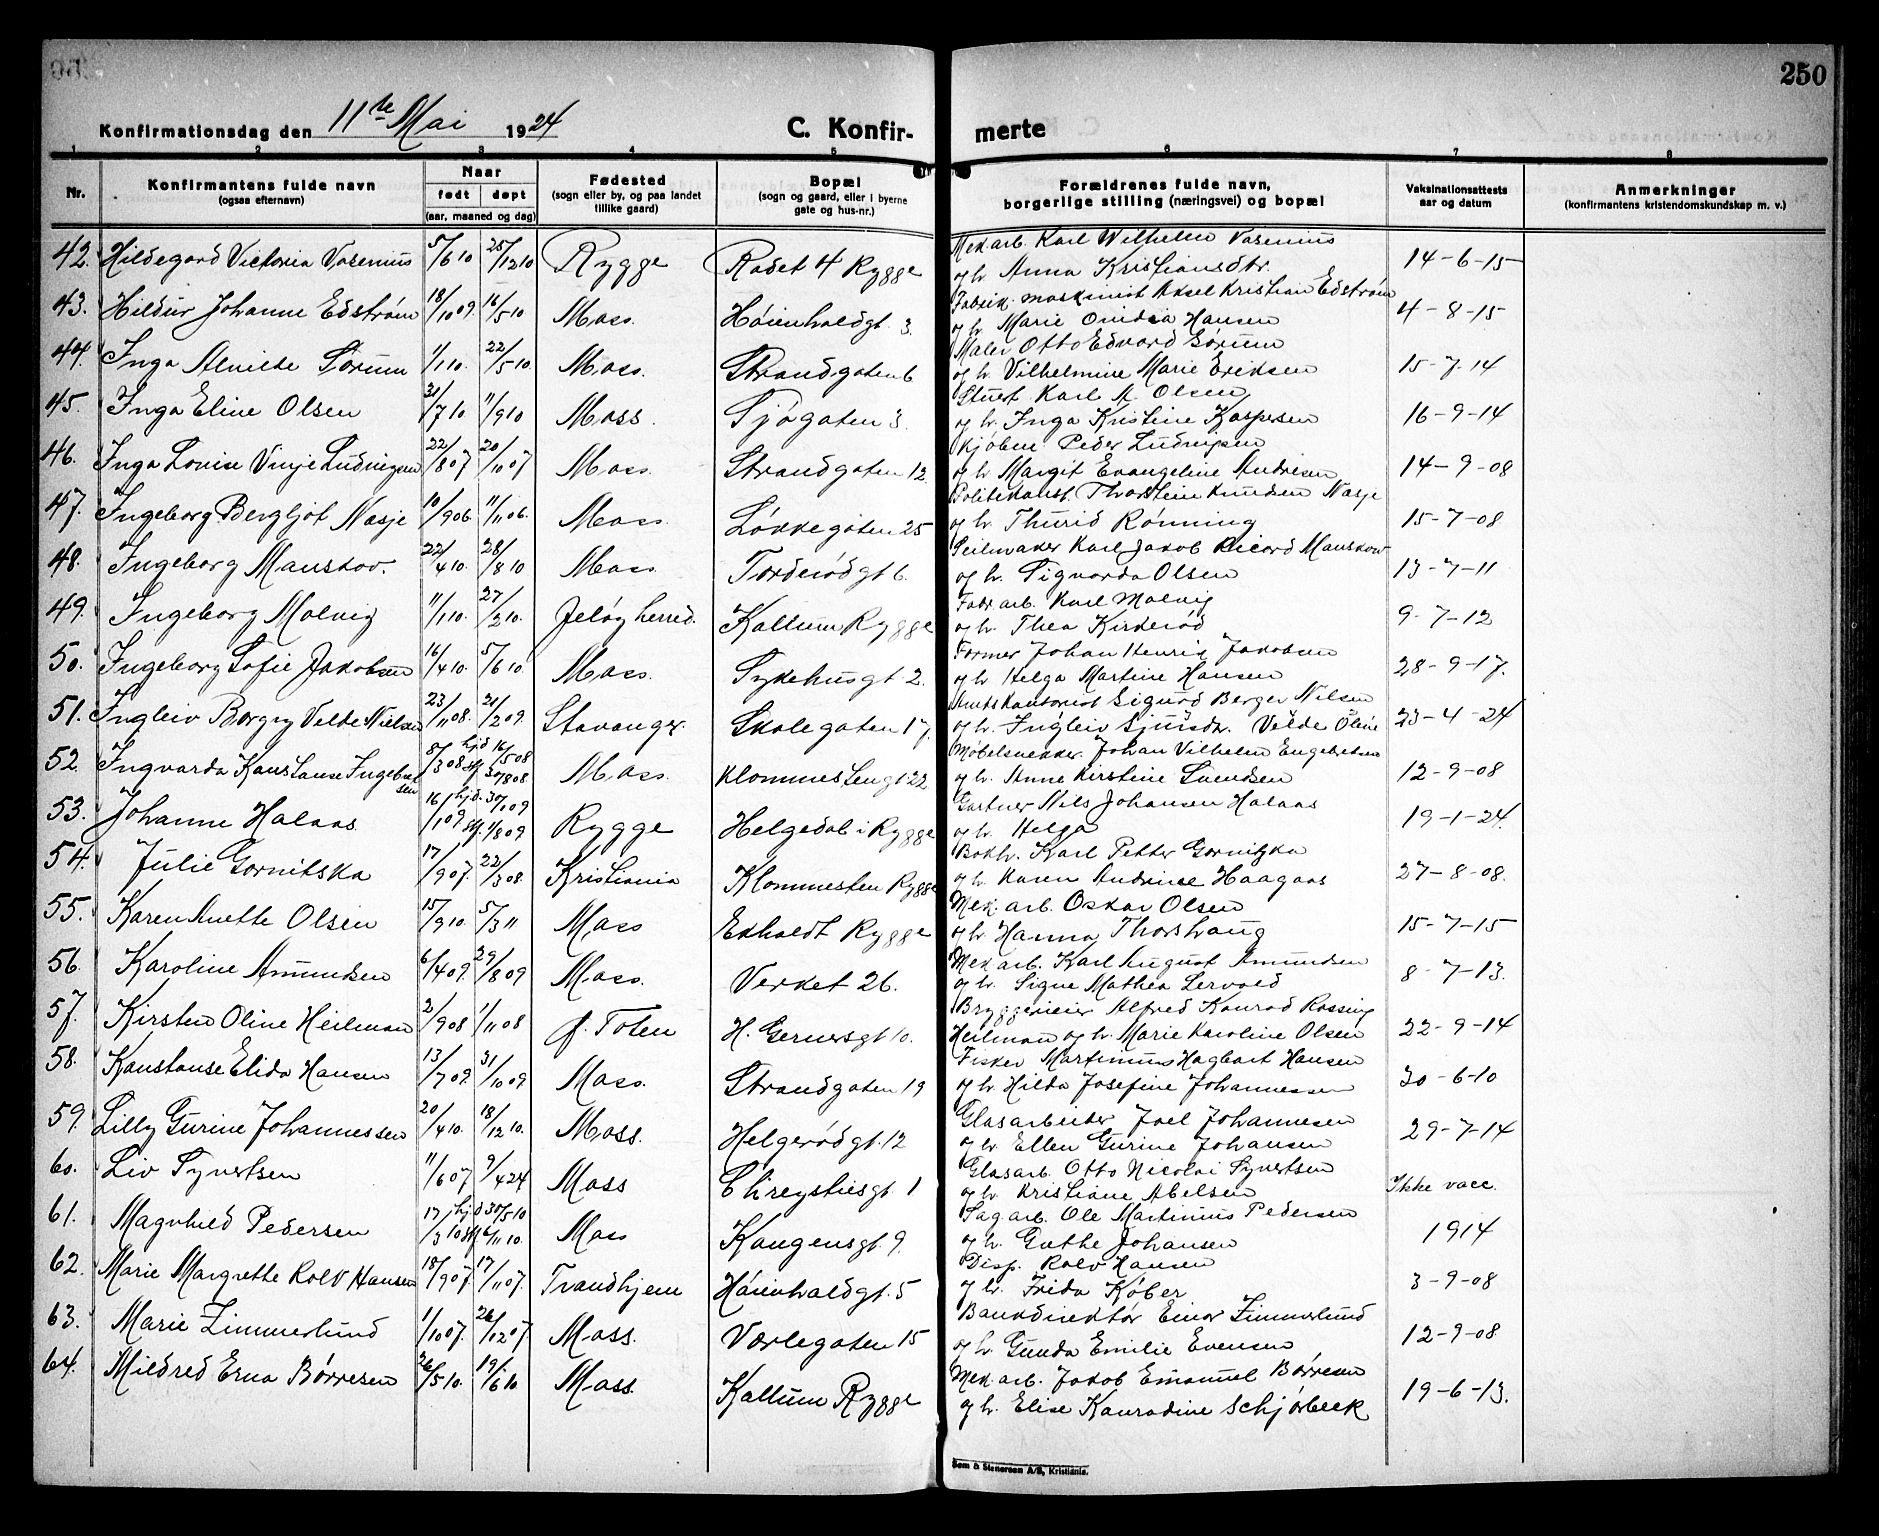 250
Konfirmationsdag den 11te Mai 1924 C. Konfirmerte
1 2 3 4 5 6 7 8
Nr. Konfirmantens fulde navn (ogsaa efternavn) Naar født døpt (aar, maaned og dag) Fødested (sogn eller by, og paa landet tillike gaard) Bopæl (sogn og gaard, eller i byerne gate og hus-nr.) Forældrenes fulde navn, borgerlige stilling (næringsvei) og bopæl Vaksinationsattests aar og datum Anmerkninger (konfirmantens kristendomskundskap m. v.)
42. Hildegard Victoria Vasenius 5/6 10 25/12 10 Rygge Rødet 4 Rygge Mek. arb. Karl Wilhelm Vasenius
og h. Anna Kristiansdtr. 14-6-15
43. Hildur Johanne Edstrøm 18/10 09. 16/5 10 Moss. Høienhaldgt. 3. Fabrik. maskinist Aksel Kristian Edstrøm
og h. Marie Ovidia Hansen 4-8-15
44. Inga Alvilde Sørum 1/1 10. 22/5 10. Moss. Strandgaten 6 Maler Otto Edvard Sørum
og h. Vilhelmine Marie Eriksen 15-7-14
45. Inga Eline Olsen 31/7 10 11/9 10 Moss. Sjøgaten 3. Stuert Karl A. Olsen
og h. Inga Kristine Kaspersen 16-9-14
46. Inga Louise Vinje Ludvigsen 22/8 07 20/10 07 Moss. Strandgaten 12. Kjøbm. Peder Ludvigsen
og h. Margit Evangeline Andresen 14-9-08
47. Ingeborg Bergljot Nasje 10/9 06. 11/11 06. Moss. Løkkegaten 25 Politikonst. Thorstein Knudsen Nasje
og h. Thurid Rønning 15-7-08
48. Ingeborg Manskov. 22/4 10. 28/8 10 Moss. Torderødgt 6. Seilmaker Karl Jakob Ricard Manskow
og h. Sigvarda Olsen 13-7-11
49. Ingeborg Molvig 11/1 10. 27/2 10. Jeløy herred. Kallum Rygge Fabr. arb. Karl Molvig
og h. Thea Kirkerød 9-7-12
50. Ingeborg Sofie Jakobsen 16/4 10. 5/6 10 Moss. Sykehusgt 2. Former Johan Henrik Jakobsen
og h. Helga Martine Hansen 28-9-17.
51. Ingleiv Borgny Velde Nielsen 23/11 08. 21/2 09. Stavanger. Skolegaten 17. Amtskontorist Sigurd Berger Nilsen
og h. Ingleiv Sjursdr. Velde Oline 23-4-24
52. Ingvarda Konstanse Ingebretsen 8/3 08 hjd 16/5 08 stf. 30/8 08. Moss. Klommestengt 22 Møbelsnekker Johan Vilhelm Engebretsen
og h. Anne Kirstine Svendsen 12-9-08
53. Johanne Halaas 16/1 09 hjd. 30/1 09 stf. 1/8 09 Rygge Helgedal i Rygge Gartner Nils Johansen Halaas
og h. Helga 19-1-24.
54. Julie Gornitska 17/9 07. 22/3 08. Kristiania Klommesten Rygge Bokh. Karl Petter Gornitzka
og h. Karen Andrine Haagaas 27-8-08.
55. Karen Anette Olsen 15/9 10. 5/3 11 Moss Ekholdt Rygge Mek. arb. Oskar Olsen
og h. Hanna Thorshaug 15-7-15
56. Karoline Amundsen 6/4 09. 29/8 09 Moss. Verket 26. Mek arb. Karl August Amundsen
og h. Signe Mathea Lervold 8-7-13.
57. Kirsten Oline Heilman 2/9 08 1/11 08 Ø. Toten H. Gernersgt 10. Bryggerieier Alfred Konrad Rossing
Heilman og h. Marie Karoline Olsen 22-9-14
58. Konstanse Elida Hansen 13/7 09. 31/10 09 Moss. Strandgaten 19 Fisker Martinius Hagbart Hansen
og h. Hilda Josefine Johannessen 30-6-10
59. Lilly Gurine Johannessen 20/4 10. 18/12 10. Moss. Helgerødgt. 12 Glasarbeider Joel Johannesen
og h. Ellen Gurine Johansen 29-7-14
60. Liv Syvertsen 11/6 07 9/4 24 Moss Chrystiesgt 1 Glasarb. Otto Nicolai Syvertsen
og h. Kristiane Abelsen Ikke vacc.
61. Magnhild Pedersen 17/3 10 hjd 30/5 10 stf. 6/11 10. Moss Kongensgt. 9. Sagarb. Ole Martinius Pedersen
og h. Grethe Johansen 1914
62. Marie Margrethe Rolv Hansen 18/9 07. 17/11 07. Trondhjem Høienhaldgt. 5 Disp. Rolv Hansen
og h. Frida Køber 3-9-08
63. Marie Zimmerlund 1/10 07. 26/12 07. Moss. Værlegaten 15 Bankdirektør Einar Zimmerlund
og h. Gunda Emilie Evensen 12-9-08
64. Mildred Erna Børresen 26/5 10. 19/6 10 Moss. Kallum Rygge Mek arb. Jakob Emanuel Børresen
og h. Elise Konradine Schjørbeck 19-6-13.
Sem & Stenersen A/S, Kristiania.